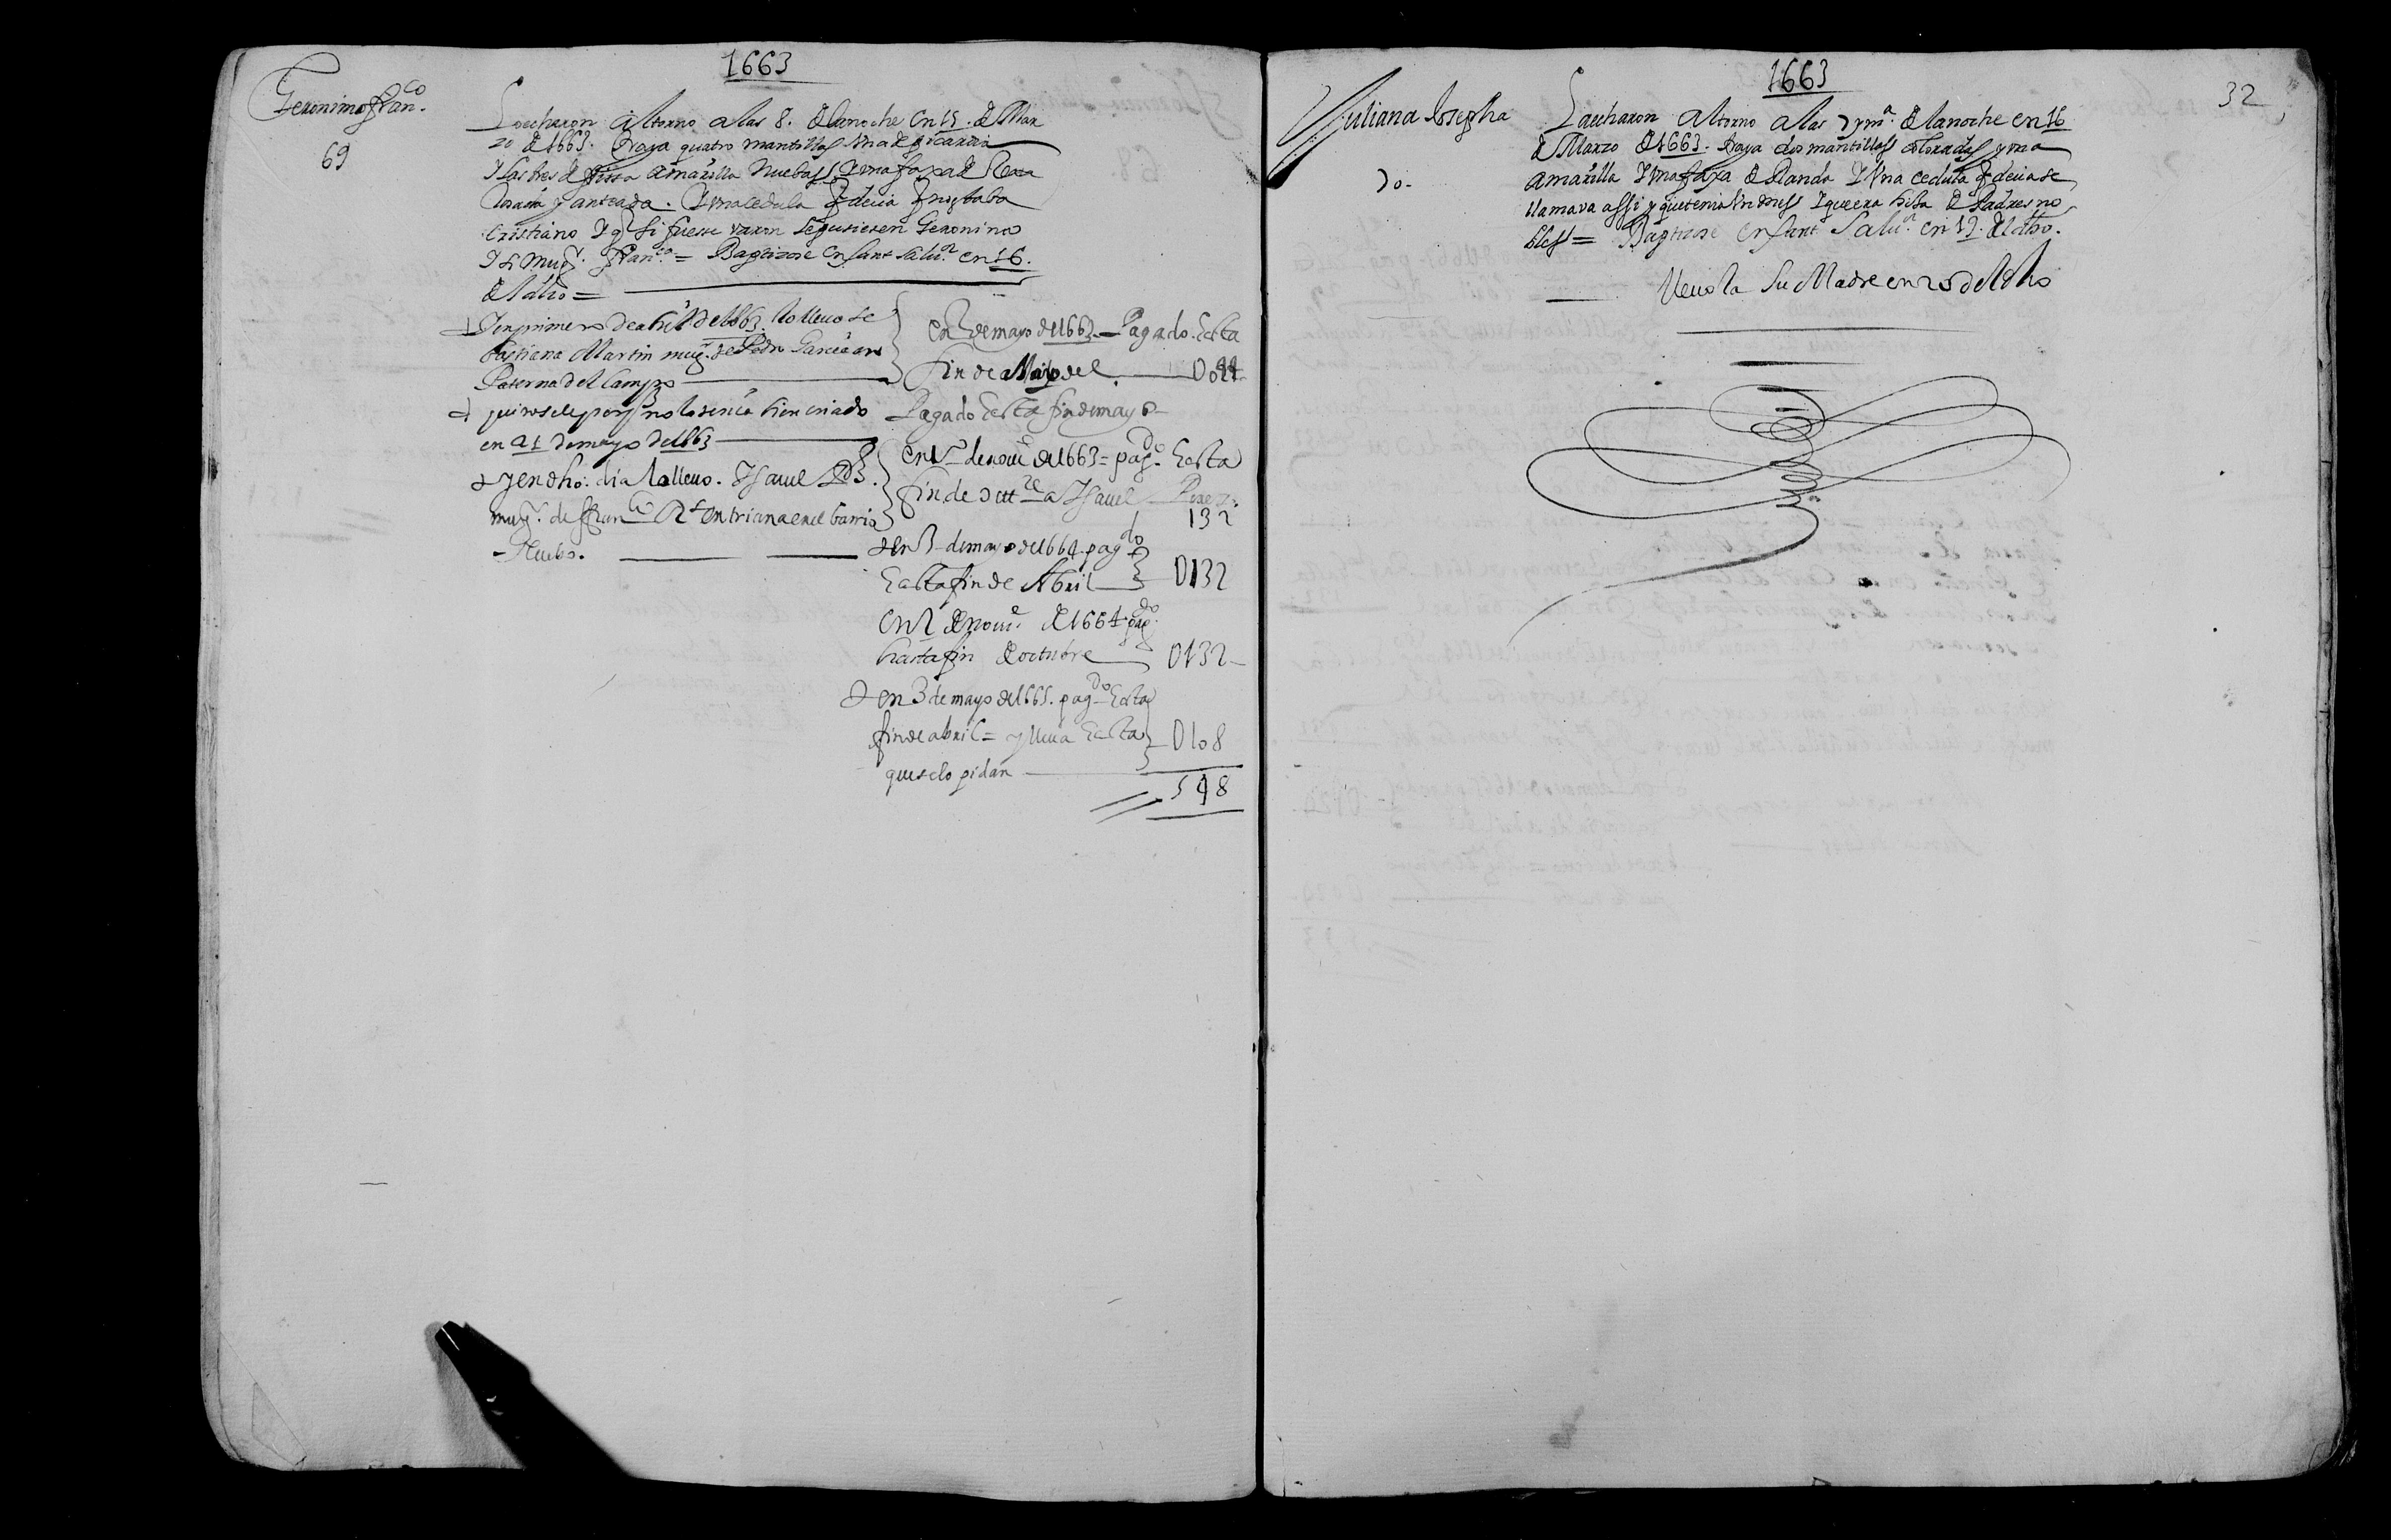 1663
Geronimo fran.co
69
Lo echaron al torno a las 8. de la noche en 15. de Mar
zo de 1663. traya quatro mantillas una de picardia
y las tres de frisa amarilla nuebas y una faxa de
y anteada. y una cedula q decia q no estaba
cristiano y q si fuese varon le pusiesen Geronimo
y si mug.r fran.ca = Baptizose en sant salu.or en 16.
del dho =
Y en primero de abril de 1663. lo lleuo se
bastiana Martin mug.r de Pedro Garcia en
Paterna del Campo
quitosele porq no lo tenia bien criado
en 21 de mayo de 1663
y en dho. dia lo lleuo. Ysauel
mug.r de ffran.co en triana en el barrio
Nuebo.
en 2 de mayo de 1663 Pagado. hasta
fin de Mayo del D044
Pagado hasta fin de mayo
en de nou.e de 1663 = pag.do hasta
fin de a Ysauel
132
en 3 de mayo de 1664 pag.do
hasta fin de Abril D132
en 2 de nou.e de 1664 pag.do
hasta fin de octubre D132
en 3 de mayo de 1665. pag.do hasta
fin de abril = y lleua hasta D108
que se lo pidan
548
1663
32
Juliana Josepha
70.
La echaron al torno a las 7 y m.a de la noche en 16
de Marzo de 1663. traya dos mantillas coloradas y una
amarilla y una faxa de Randa y Una cedula q decia se
llamava assi y que tenia un mes y que era hija de Padres no
bles = Baptizose en sant Salu.or en 17. del dho.
lleuola Su Madre en 20 del dho